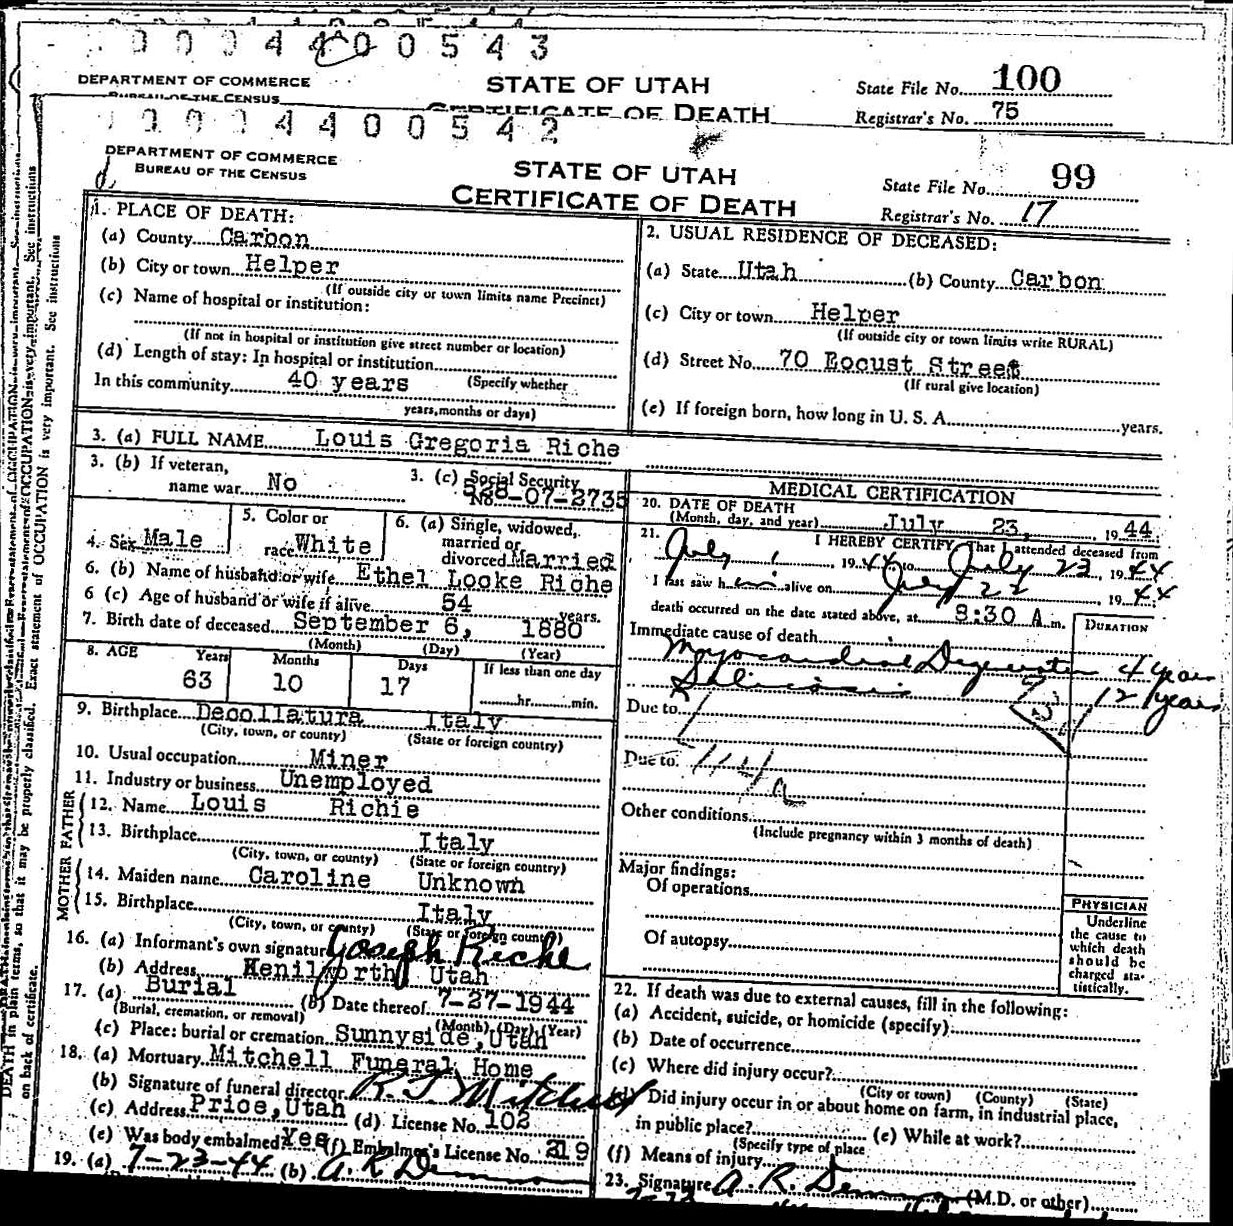 0 0 0 4 4 0 0 5 4 3
DEPARTMENT OF COMMERCE
BUREAU OF THE CENSUS
STATE OF UTAH
CERTIFICATE OF DEATH
State File No. 100
Registrar's No. 75
0 0 0 4 4 0 0 5 4 2
DEPARTMENT OF COMMERCE
BUREAU OF THE CENSUS
STATE OF UTAH
CERTIFICATE OF DEATH
State File No. 99
Registrar's No. 17
1. PLACE OF DEATH:
(a) County Carbon
(b) City or town Helper
(If outside city or town limits name Precinct)
(c) Name of hospital or institution:
(If not in hospital or institution give street number or location)
(d) Length of stay: In hospital or institution
In this community 40 years (Specify whether
years, months or days)
2. USUAL RESIDENCE OF DECEASED:
(a) State Utah (b) County Carbon
(c) City or town Helper
(If outside city or town limits write RURAL)
(d) Street No. 70 Locust Street
(If rural give location)
(e) If foreign born, how long in U. S. A. years.
3. (a) FULL NAME Louis Gregoria Riche
3. (b) If veteran,
name war No
3. (c) Social Security
No. 528-07-2735
4. Sex Male
5. Color or
race White
6. (a) Single, widowed,
married or
divorced Married
6. (b) Name of husband or wife Ethel Looke Riche
6 (c) Age of husband or wife if alive 54 years.
7. Birth date of deceased September 6, 1880
(Month) (Day) (Year)
8. AGE Years Months Days If less than one day
63 10 17 hr. min.
9. Birthplace Decollatura Italy
(City, town, or county) (State or foreign country)
10. Usual occupation Miner
11. Industry or business Unemployed
FATHER
12. Name Louis Richie
13. Birthplace Italy
(City, town, or county) (State or foreign country)
MOTHER
14. Maiden name Caroline Unknown
15. Birthplace Italy
(City, town, or county) (State or foreign country)
16. (a) Informant's own signature Joseph Riche
(b) Address Kenilworth, Utah
17. (a) Burial (b) Date thereof 7-27-1944
(Burial, cremation, or removal) (Month) (Day) (Year)
(c) Place: burial or cremation Sunnyside, Utah
18. (a) Mortuary Mitchell Funeral Home
(b) Signature of funeral director R. T. Mitchell
(c) Address Price, Utah (d) License No. 102
(e) Was body embalmed Yes (f) Embalmer's License No. 319
19. (a) 7-23-44 (b) A. R. Demman
MEDICAL CERTIFICATION
20. DATE OF DEATH
(Month, day, and year) July 23, 1944
21. I HEREBY CERTIFY, That I attended deceased from
July 1 1944 to July 23 1944
I last saw him alive on July 22 1944
death occurred on the date stated above, at 8:30 A. m.
DURATION
Immediate cause of death
Myocardial Degeneration 4 years
Silicosis 12 years
Due to
Due to 114a
Other conditions
(Include pregnancy within 3 months of death)
Major findings:
Of operations
Of autopsy
PHYSICIAN
Underline
the cause to
which death
should be
charged sta-
tistically.
22. If death was due to external causes, fill in the following:
(a) Accident, suicide, or homicide (specify)
(b) Date of occurrence
(c) Where did injury occur?
(City or town) (County) (State)
(d) Did injury occur in or about home on farm, in industrial place,
in public place? (e) While at work?
(Specify type of place
(f) Means of injury
23. Signature A. R. Demman (M.D. or other)
DEATH in plain terms, so that it may be properly classified. Exact statement of OCCUPATION is very important. See instructions
on back of certificate.